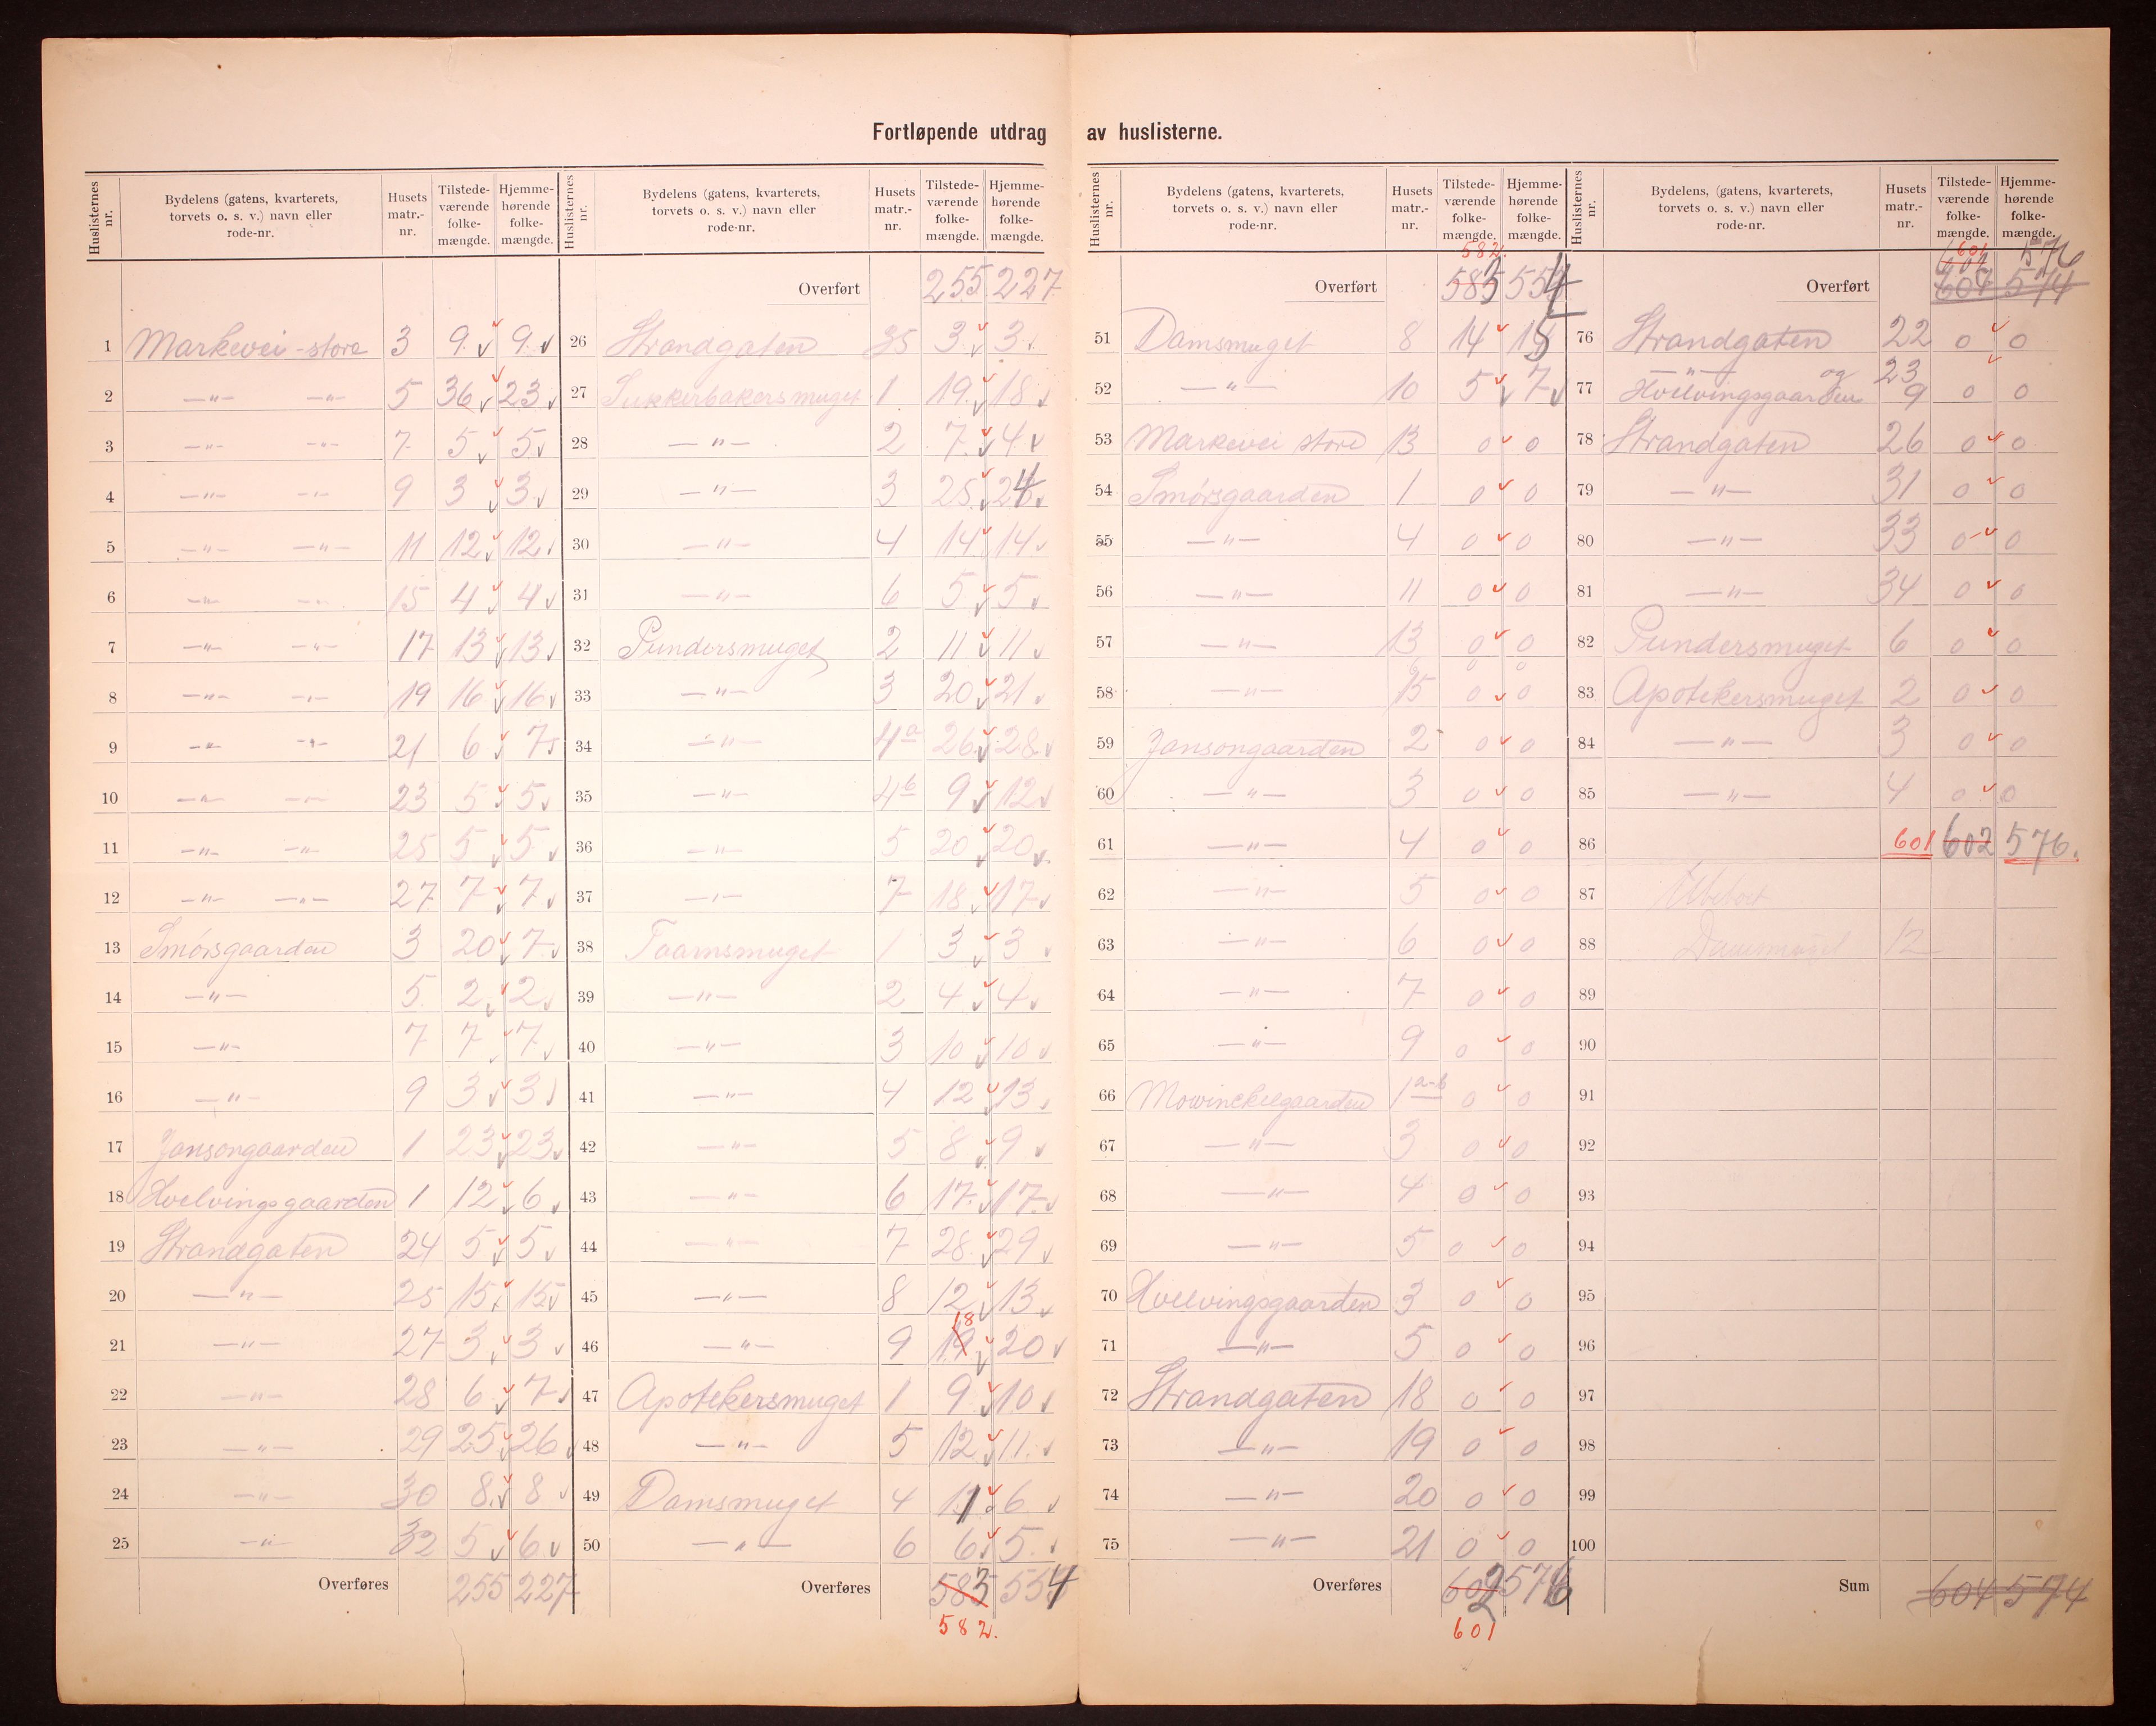 Fortløpende utdrag av huslisterne.
Huslisternes nr. | Bydelens (gatens, kvarterets, torvets o. s. v.) navn eller rode-nr. | Husets matr.-nr. | Tilstede-værende folke-mængde. | Hjemme-hørende folke-mængde.
1 Markevei - store 3 9 9
2 —"— —"— 5 36 23
3 —"— —"— 7 5 5
4 —"— —"— 9 3 3
5 —"— —"— 11 12 12
6 —"— —"— 15 4 4
7 —"— —"— 17 13 13
8 —"— —"— 19 16 16
9 —"— —"— 21 6 7
10 —"— —"— 23 5 5
11 —"— —"— 25 5 5
12 —"— —"— 27 7 7
13 Smørsgaarden 3 20 7
14 —"— 5 2 2
15 —"— 7 7 7
16 —"— 9 3 3
17 Jansongaarden 1 23 23
18 Hvelvingsgaarden 1 12 6
19 Strandgaten 24 5 5
20 —"— 25 15 15
21 —"— 27 3 3
22 —"— 28 6 7
23 —"— 29 25 26
24 —"— 30 8 8
25 —"— 32 5 6
Overføres 255 227
Huslisternes nr. | Bydelens (gatens, kvarterets, torvets o. s. v.) navn eller rode-nr. | Husets matr.-nr. | Tilstede-værende folke-mængde. | Hjemme-hørende folke-mængde.
Overført 255 227
26 Strandgaten 35 3 3
27 Sukkerbakersmuget 1 19 18
28 —"— 2 7 4
29 —"— 3 25 24
30 —"— 4 14 14
31 —"— 6 5 5
32 Pundersmuget 2 11 11
33 —"— 3 20 21
34 —"— 4a 26 28
35 —"— 4b 9 12
36 —"— 5 20 20
37 —"— 7 18 17
38 Taarnsmuget 1 3 3
39 —"— 2 4 4
40 —"— 3 10 10
41 —"— 4 12 13
42 —"— 5 8 9
43 —"— 6 17 17
44 —"— 7 28 29
45 —"— 8 12 13
18
46 —"— 9 19 20
47 Apotekersmuget 1 9 10
48 —"— 5 12 11
49 Damsmuget 4 11 6
50 —"— 6 6 5
Overføres 583 554
582.
Huslisternes nr. | Bydelens (gatens, kvarterets, torvets o. s. v.) navn eller rode-nr. | Husets matr.-nr. | Tilstede-værende folke-mængde. | Hjemme-hørende folke-mængde.
582.
Overført 583 554
51 Damsmuget 8 14 15
52 —"— 10 5 7
53 Markevei store 13 0 0
54 Smørsgaarden 1 0 0
55 —"— 4 0 0
56 —"— 11 0 0
57 —"— 13 0 0
58 —"— 15 0 0
59 Jansongaarden 2 0 0
60 —"— 3 0 0
61 —"— 4 0 0
62 —"— 5 0 0
63 —"— 6 0 0
64 —"— 7 0 0
65 —"— 9 0 0
66 Mowinckelgaarden 1a-b 0 0
67 —"— 3 0 0
68 —"— 4 0 0
69 —"— 5 0 0
70 Hvelvingsgaarden 3 0 0
71 —"— 5 0 0
72 Strandgaten 18 0 0
73 —"— 19 0 0
74 —"— 20 0 0
75 —"— 21 0 0
Overføres 602 576
601
Huslisternes nr. | Bydelens, (gatens, kvarterets, torvets o. s. v.) navn eller rode-nr. | Husets matr.-nr. | Tilstede-værende folke-mængde. | Hjemme-hørende folke-mængde.
601 576
Overført 604 574
76 Strandgaten 22 0 0
—"— og 23
77 Hvelvingsgaarden 9 0 0
78 Strandgaten 26 0 0
79 —"— 31 0 0
80 —"— 33 0 0
81 —"— 34 0 0
82 Pundersmuget 6 0 0
83 Apotekersmuget 2 0 0
84 —"— 3 0 0
85 —"— 4 0 0
86 601 602 576.
87 Ubeboet
88 Damsmuget 12
89
90
91
92
93
94
95
96
97
98
99
100
Sum 604 574